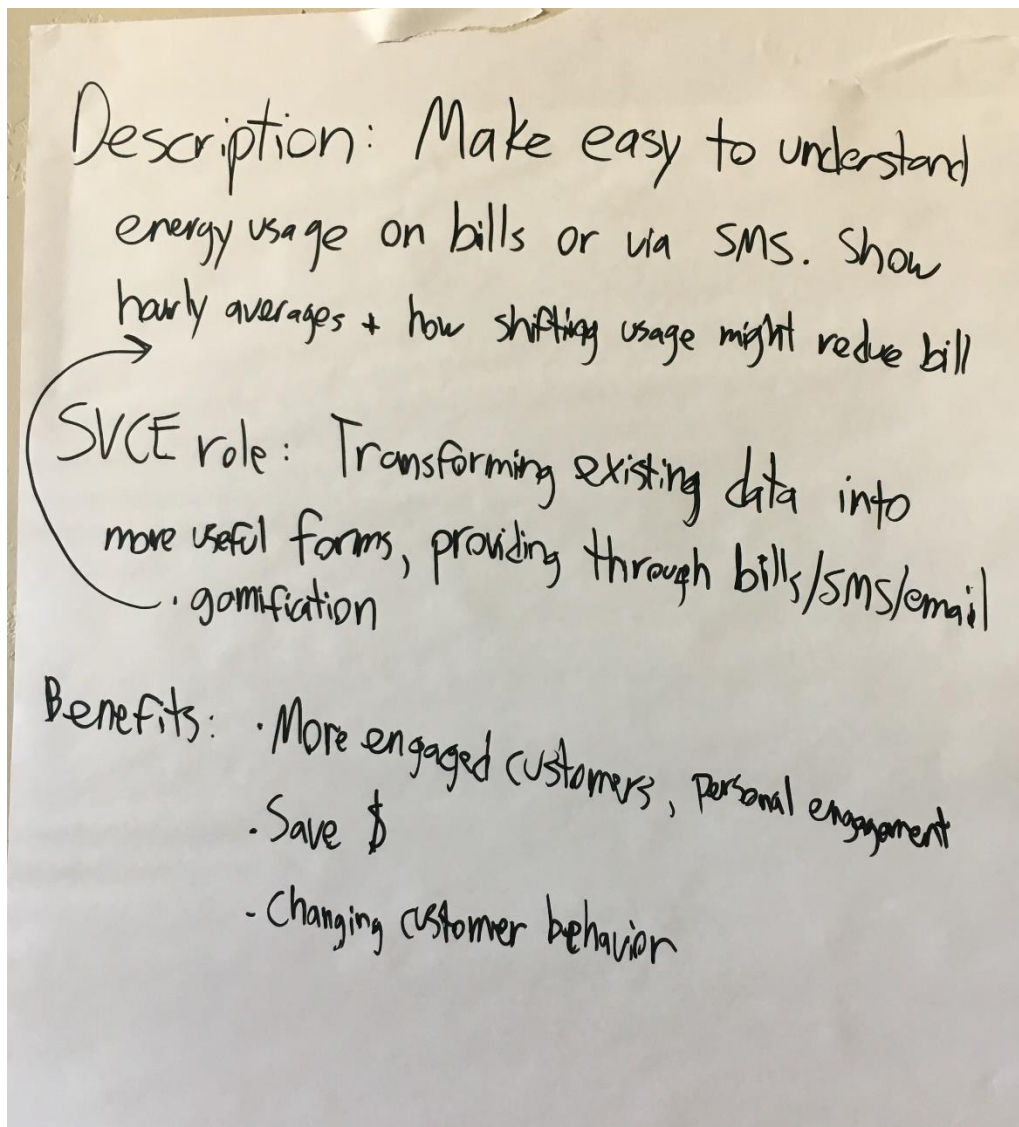 Description: Make easy to understand
energy usage on bills or via SMS. Show
hourly averages + how shifting usage might redue bill
SVCE role: Transforming existing data into
more useful forms, providing through bills/SMS/email
· gamifiction
Benefits: · More engaged customers, personal engagement
· Save $
- Changing customer behavior